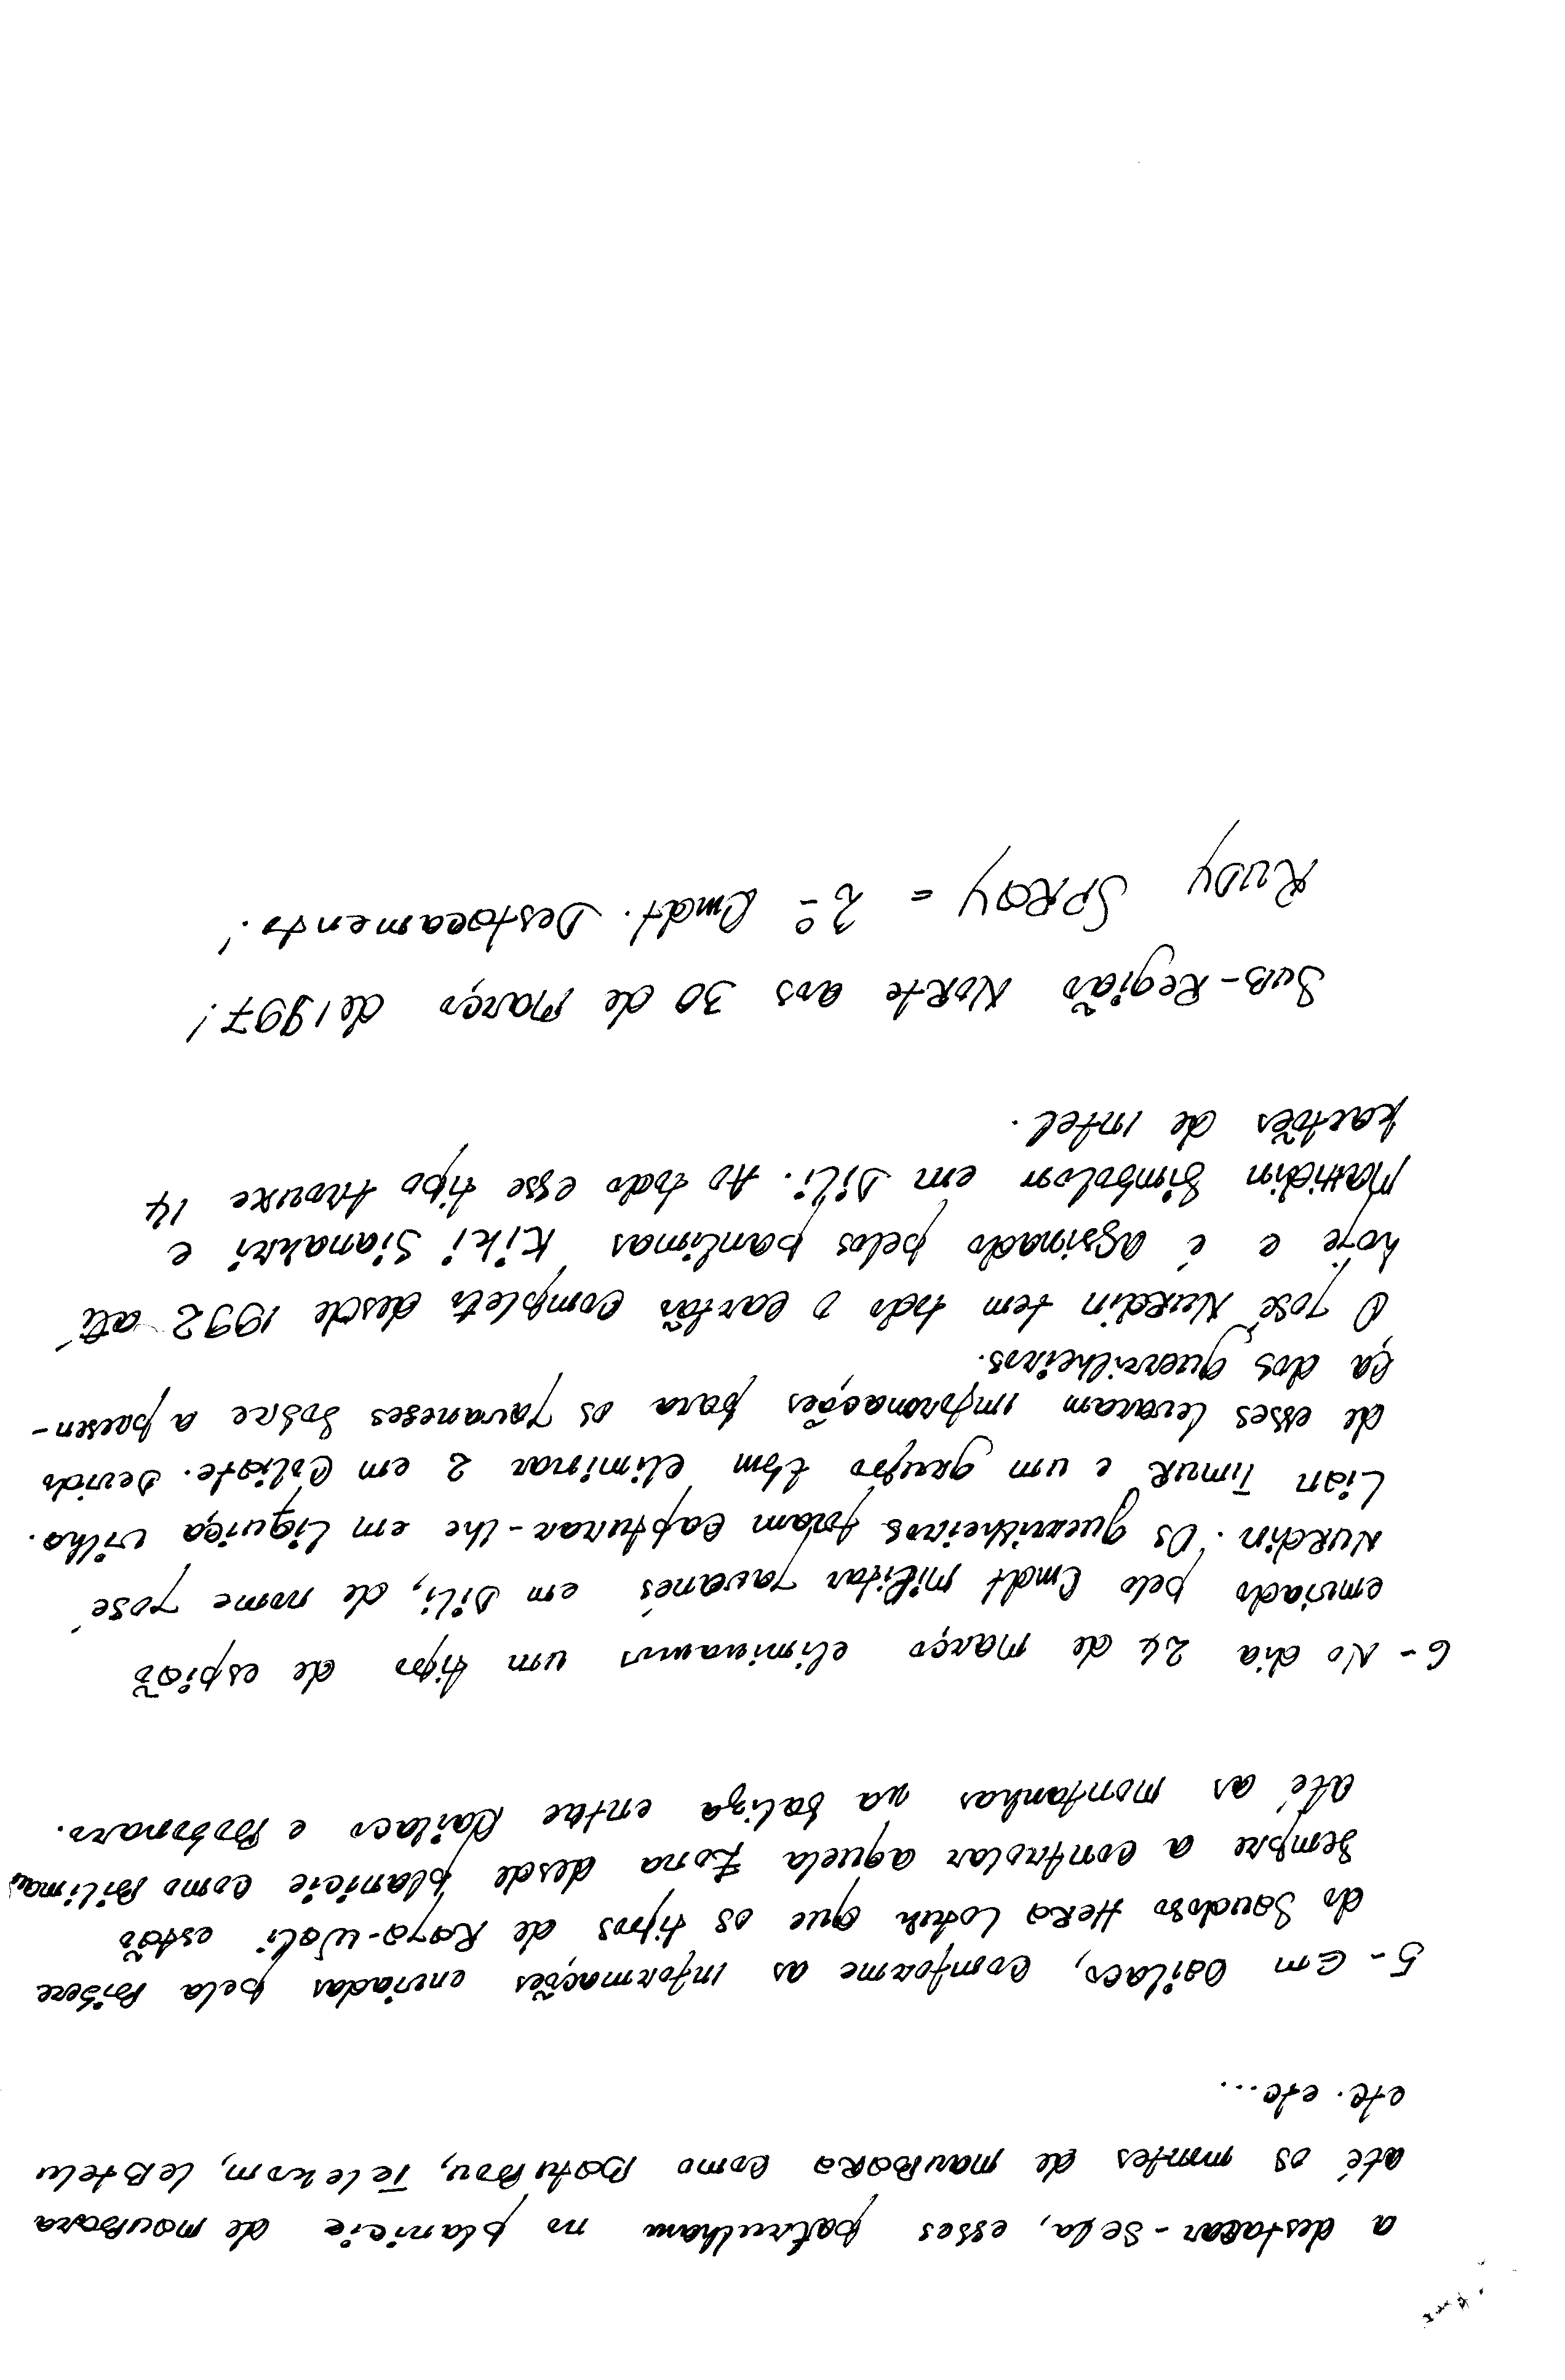 a destacar-se la, esses patrulham no planicie de mauBara
até os montes de mauBara como BatuBou, Telekom, leBtelu
etc. etc...
5 - Em Cailaco, comforme as informações enviadas pela Bibere
do Saudoso Hera Lotuk que os tipos de Raja-Wali estaõ
sempre a controlar aquela Zona desde planicie como Bilimau
até as montanhas na baliza entre Cailaco e Bobonaro.
6 - No dia 24 de março eliminamos um tipo de espiaõ
enviado pelo Cmdt militar javanés em Dili, de nome José
Nurdin. Os guerrilheiros foram capturar-lhe em Liquiça vilha.
Lian Timur e um grupo tbm eliminar 2 em Coliate. Devido
de esses levaram imformações para os javaneses sobre a presen-
ça dos guerrilheiros.
O José Nurdin tem todo o cartaõ completo desde 1992 até
hoje e é assinado pelos panlimas Kiki Sianakri e
Mahidin Simbolon em Dili. Ao todo esse tipo trouxe 14
kartões de intel.
Sub-Regiaõ Norte aos 30 de Março de 1997!
Rudy SPROY = 2º Cmdt. Destocamento!